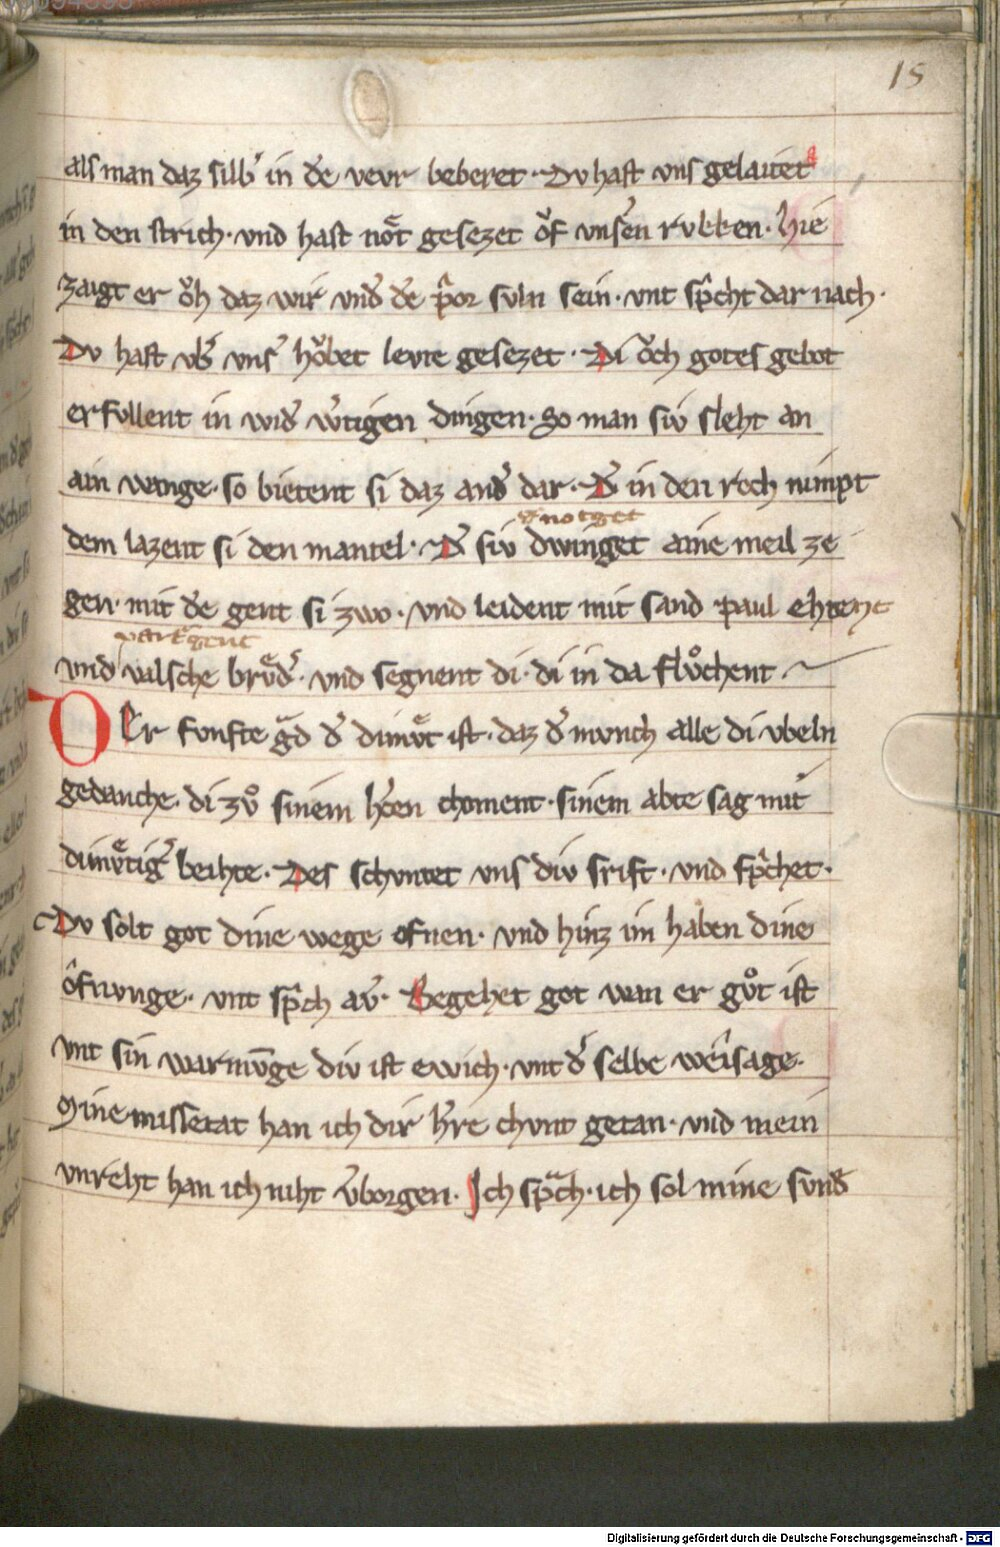 15
als man daz silb᷎ in d᷎e vevr beberet · Dv hast vns gelaitet
in den strich · vnd hast nǒt gesezet ǒf vns᷎en rvkken · hie
zaigt er ǒh daz wir vnd᷎ d᷎e p͛or svln sein · vnt sp͛cht dar nach ·
Dv hast vb᷎ vns᷎ hǒbet levte gesezet · Di ǒch gotes gebot
erfollent in wid᷎ w᷎tigen dingen · So man siv sleht an
ain wange · so bietent si daz and᷎ dar · D᷎ in den roch nimpt
v᷎notget
dem lazent si den mantel · D᷎ siv dwinget aine meil ze
gen · mit d᷎e gent si zwo · vnd leident mit sand paul ehtent
vnd valsche brv̊d᷎ · vnd segnent di · di in da flv̊chent ·
DEr fvnfte gͣd d᷎ dimv̊t ist · daz d᷎ mvnch alle di vbeln
gedanche · di zv̊ sinem h᷎cen choment · sinem abte sag mit
dimv̊tig᷎ beihte · Des schvntet vns div srift · vnd sp͛chet ·
Dv solt got dine wege ofnen · vnd hinz im haben dine
ôfnvnge · vnt sp͛ch av᷎ · Begehet got wan er gv̊t ist
vnt sin warnv̄ge div ist ewich · vnt d᷎ selbe weîsage ·
Mine missetat han ich dir h᷎re chvnt getan · vnd mein
vnreht han ich niht v᷎borgen · Ich spͣch · ich sol mine svnd᷎
Digitalisierung gefördert durch die Deutsche Forschungsgemeinschaft - DFG